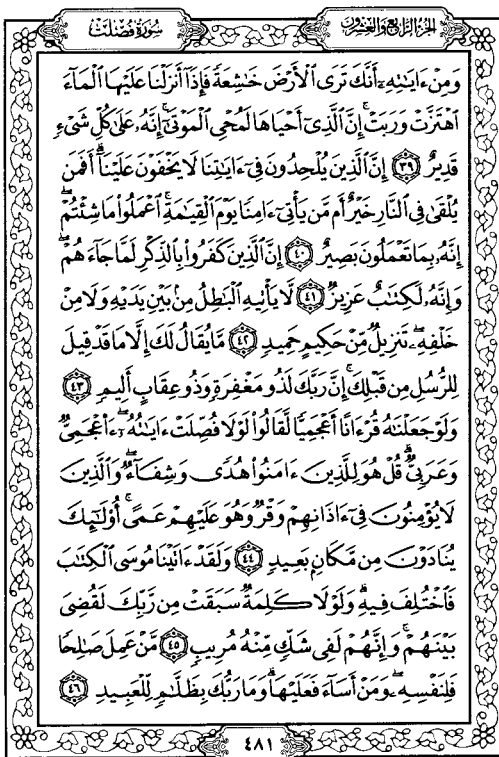 الجزء الرابع والعشرون
سورة فصلت
وَمِنْ ءَايَٰتِهِۦٓ أَنَّكَ تَرَى ٱلْأَرْضَ خَٰشِعَةً فَإِذَآ أَنزَلْنَا عَلَيْهَا ٱلْمَآءَ
ٱهْتَزَّتْ وَرَبَتْ ۚ إِنَّ ٱلَّذِىٓ أَحْيَاهَا لَمُحْىِ ٱلْمَوْتَىٰٓ ۚ إِنَّهُۥ عَلَىٰ كُلِّ شَىْءٍ
قَدِيرٌ ٣٩ إِنَّ ٱلَّذِينَ يُلْحِدُونَ فِىٓ ءَايَٰتِنَا لَا يَخْفَوْنَ عَلَيْنَآ ۗ أَفَمَن
يُلْقَىٰ فِى ٱلنَّارِ خَيْرٌ أَم مَّن يَأْتِىٓ ءَامِنًا يَوْمَ ٱلْقِيَٰمَةِ ۚ ٱعْمَلُوا۟ مَا شِئْتُمْ ۖ
إِنَّهُۥ بِمَا تَعْمَلُونَ بَصِيرٌ ٤٠ إِنَّ ٱلَّذِينَ كَفَرُوا۟ بِٱلذِّكْرِ لَمَّا جَآءَهُمْ ۖ
وَإِنَّهُۥ لَكِتَٰبٌ عَزِيزٌ ٤١ لَّا يَأْتِيهِ ٱلْبَٰطِلُ مِنۢ بَيْنِ يَدَيْهِ وَلَا مِنْ
خَلْفِهِۦ ۖ تَنزِيلٌ مِّنْ حَكِيمٍ حَمِيدٍ ٤٢ مَّا يُقَالُ لَكَ إِلَّا مَا قَدْ قِيلَ
لِلرُّسُلِ مِن قَبْلِكَ ۚ إِنَّ رَبَّكَ لَذُو مَغْفِرَةٍ وَذُو عِقَابٍ أَلِيمٍ ٤٣
وَلَوْ جَعَلْنَٰهُ قُرْءَانًا أَعْجَمِيًّا لَّقَالُوا۟ لَوْلَا فُصِّلَتْ ءَايَٰتُهُۥٓ ۖ ءَا۬عْجَمِىٌّ
وَعَرَبِىٌّ ۗ قُلْ هُوَ لِلَّذِينَ ءَامَنُوا۟ هُدًى وَشِفَآءٌ ۖ وَٱلَّذِينَ
لَا يُؤْمِنُونَ فِىٓ ءَاذَانِهِمْ وَقْرٌ وَهُوَ عَلَيْهِمْ عَمًى ۚ أُو۟لَٰٓئِكَ
يُنَادَوْنَ مِن مَّكَانٍۭ بَعِيدٍ ٤٤ وَلَقَدْ ءَاتَيْنَا مُوسَى ٱلْكِتَٰبَ
فَٱخْتُلِفَ فِيهِ ۗ وَلَوْلَا كَلِمَةٌ سَبَقَتْ مِن رَّبِّكَ لَقُضِىَ
بَيْنَهُمْ ۚ وَإِنَّهُمْ لَفِى شَكٍّ مِّنْهُ مُرِيبٍ ٤٥ مَّنْ عَمِلَ صَٰلِحًا
فَلِنَفْسِهِۦ ۖ وَمَنْ أَسَآءَ فَعَلَيْهَا ۗ وَمَا رَبُّكَ بِظَلَّٰمٍ لِّلْعَبِيدِ ٤٦
٤٨١